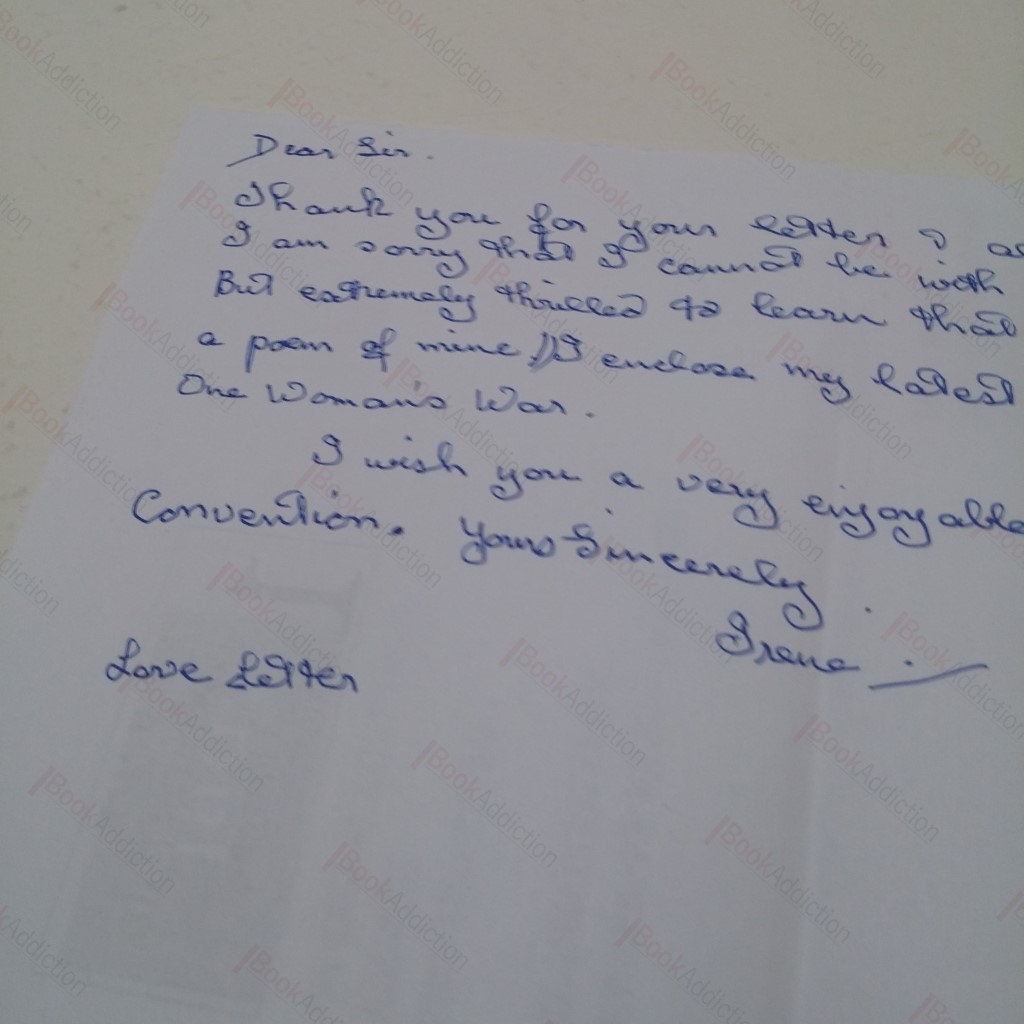 Dear Sir.
Thank you for your letter &
I am sorry that I cannot be with
But extremely thrilled to learn that
a poem of mine, I enclose my latest
One Woman's War.
I wish you a very enjoyable
Convention. Yours Sincerely
Irene
Love Letter
BookAddiction